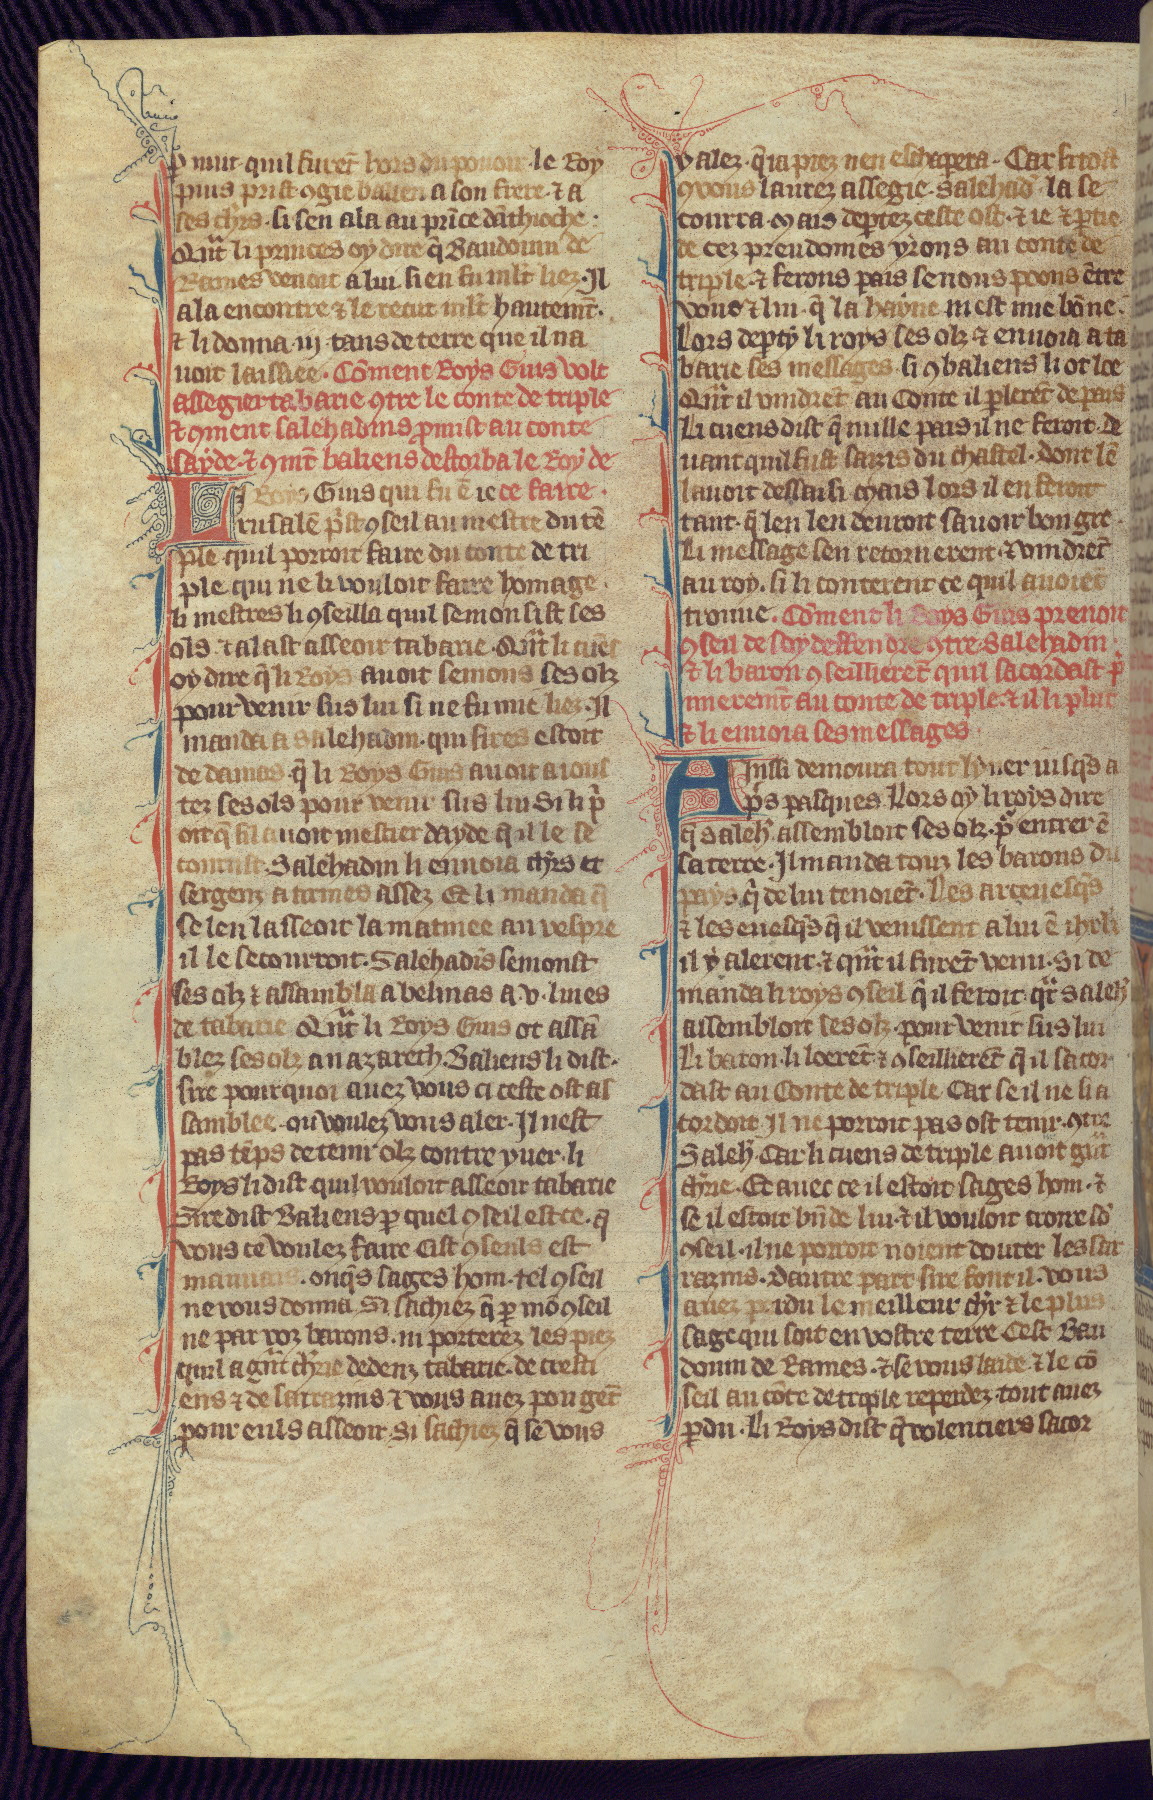 p̱ mut quil furēt hors du pouoir le Roy
puis prist ꝯgie balien a son frere ⁊ a
ses chr̄s. si sen ala au prīce dāthioche.
Qūt li princes oy dire q̄ Baudouin de
Rames venoit a lui. si en fu ml̄t liez. Il
ala encontre ⁊ le recut ml̄t hautemēt.
⁊ li donna .iij. tans de terre que il na
uoit laissiee. Cōment Roys Guis volt
assegier tabarie ꝯtre le conte de triple
⁊ ꝯment salehadins p̱mist au conte
sayde. ⁊ ꝯmt̄ baliens destorba le Roy de
Li Roys Guis qui fu ē ie ce faire.
rusalē pr̄st ꝯseil au mestre du tē
ple quil porroit faire du conte de tri
ple qui ne li vouloit faire homage.
li mestres li ꝯseilla quil semonsist ses
ols ⁊ alast asseoir tabarie. Qūt li cuēs
oy dire q̄ li Roys auoit semons ses olz
pour venir sus lui si ne fu mie liez. Il
manda a Salehadin. qui sires estoit
de damas. q̄ li Roys Guis auoit aious
tez ses ols pour venir sus lui Si li p̄
oit q̄ sil auoit mestier dayde q̄ il le se
courust. Salehadin li enuoia chr̄s et
sergenz a armes assez. Et li manda q̄
se len lasseoit la matinee au vespre
il le secourroit. Salehadīs semonst
ses olz ⁊ assambla a belinas a .v. liues
de tabarie Qūt li Roys Guis ot assā
blez ses olz a nazareth. Baliens li dist.
sire pour quoi auez vous ci ceste ost as
samblee. ou voulez vous aler. Il nest
pas tēps de tenir olz contre yuer. li
Roys li dist quil vouloit asseoir tabarie
Sire dist Baliens p̱ quel ꝯseil est ce. q̄
vous ce voulez faire Cist ꝯseuls est
mauuais. onq̄s sages hom. tel ꝯseil
ne vous donna. Si sachiez q̄ p̱ mō ꝯseil
ne par voz barons. ni porterez les piez
quil a gn̄t chr̄ie dedenz tabarie. de cresti
ens ⁊ de sarrazins ⁊ vous auez pou gēt
pour euls asseoir. Si sachiez q̄ se vous
y alez. q̄ ia piez nen eschapera. Car si tost
ꝯ vous laurez assegie. Salehad̄ la se
courra. Mais dep̱tez ceste ost. ⁊ ie ⁊ p̱tie
de cez preudomes yrons au conte de
triple ⁊ ferons pais se nous poons ētre
vous ⁊ lui. q̄ la hayne ni est mie bōne.
Lors dep̱ty li roys ses olz ⁊ enuoia a ta
barie ses messages. si ꝯ baliens li ot loe
Qūt il vindrēt au Conte il p̱lerēt de pais
Li cuens dist q̄ nulle pais il ne feroit. De
uant quil fust saizis du chastel. dont lē
lauoit dessaisi. Mais lors il en feroit
tant. q̄ len len deuroit sauoir bon gre.
Li message sen retornerent. ⁊ vindrēt
au roy. si li conterent ce quil auoiēt
trouue. Cōment li Roys Guis prenoit
ꝯseil de soy deffendre ꝯtre Salehadin.
⁊ li baron ꝯseillierēt quil sacordast p̄
mieremt̄ au conte de triple. ⁊ il li plut
⁊ li enuoia ses messages
Ainssi demoura tout lyuer iusq̄s a
p̄s pasques. Lors oy li roys dire
q̄ saleh̄. assembloit ses olz. pr̄ entrer ē
sa terre. Il manda touz les barons du
pays q̄ de lui tenoiēt. Les arceuesq̄s
⁊ les euesq̄s q̄ il venissent a lui ē ihrl̄m
il y alerent. ⁊ qūt il furēt venu. Si de
manda li roys ꝯseil q̄ il feroit. qr̄ saleh̄
assembloit ses olz. pour venir sus lui
Li baron li loerēt ⁊ ꝯseillierēt q̄ il sacor
dast au Conte de triple. Car se il ne si a
cordoit. Il ne porroit pas ost tenir. ꝯtre
Saleh̄. Car li cuens de triple auoit gn̄t
chr̄ie. Et auec ce il estoit sages hom. ⁊
se il estoit bn̄ de lui. ⁊ il vouloit croire sō
ꝯseil. il ne porroit noient douter les sar
razins. Dautre part sire font il. vous
auez perdu le meilleur chr̄ ⁊ le plus
sage qui soit en vostre terre Cest Bau
douin de Rames. ⁊ se vous laide ⁊ le cō
seil au cōte de triple reperdez. tout auez
p̱du. Li Roys dist q̄ volentiers sacor